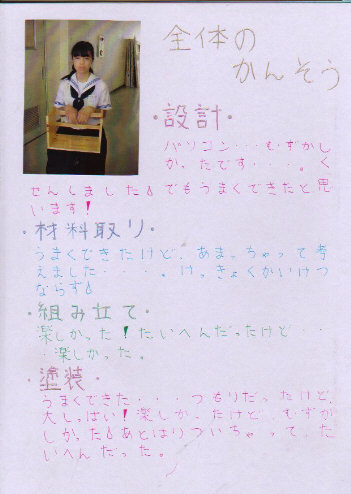 全体の
かんそう
・設計・
パソコン・・・むずかし
かったです・・・。く
せんしました。でもうまくできたと思
います!
・材料取り・
うまくできたけど、あまっちゃって考
えました・・・・。けっきょくかいけつ
ならず。
・組み立て・
楽しかった!たいへんだったけど・・
・楽しかった。
・塗装・
うまくできた・・・つもりだったけど、
大しっぱい!楽しかったけど、むずか
しかった。あとはりついちゃって、た
いへんだった。